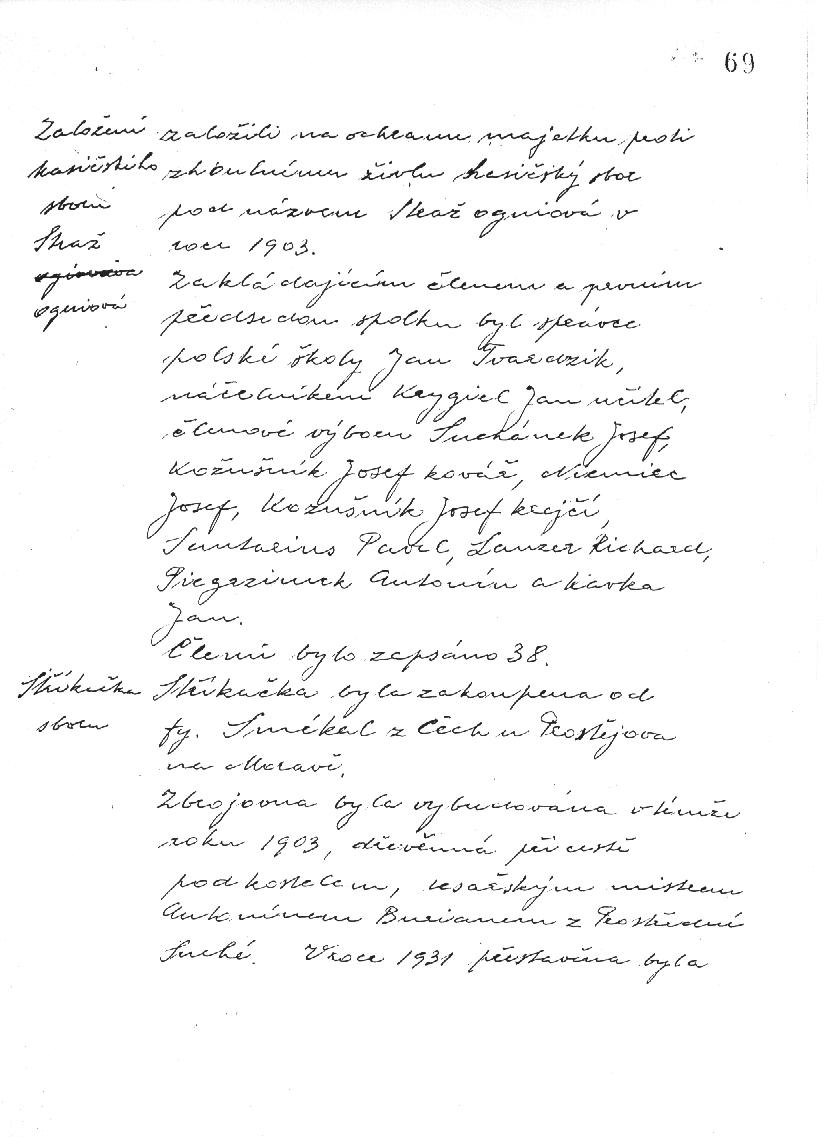 69
Založení
hasičského
sboru
Straž
ogniowa
ogniová
založili na ochranu majetku proti
zhoubnému živlu hasičský sbor
pod názvem Straž ogniová v
roce 1903.
Zakládajícím členem a prvním
předsedou spolku byl správce
polské školy Jan Tvardzik,
náčelníkem Krygiel Jan učitel,
členové výboru Suchánek Josef,
Kožušník Josef kovář, Niemiec
Josef, Kožušník Josef krejčí,
Santarius Pavel, Lanzer Richard,
Piegrzimek Antonín a Kavka
Jan.
Členů bylo zepsáno 38.
Stříkačka
sboru
Stříkačka byla zakoupena od
fy. Smékal z Čech u Prostějova
na Moravě.
Zbrojovna byla vybudována v témže
roku 1903, dřevěnná při cestě
pod kostelem, tesařským mistrem
Antonínem Burianem z Prostřední
Suché. V roce 1931 přistavěna byla